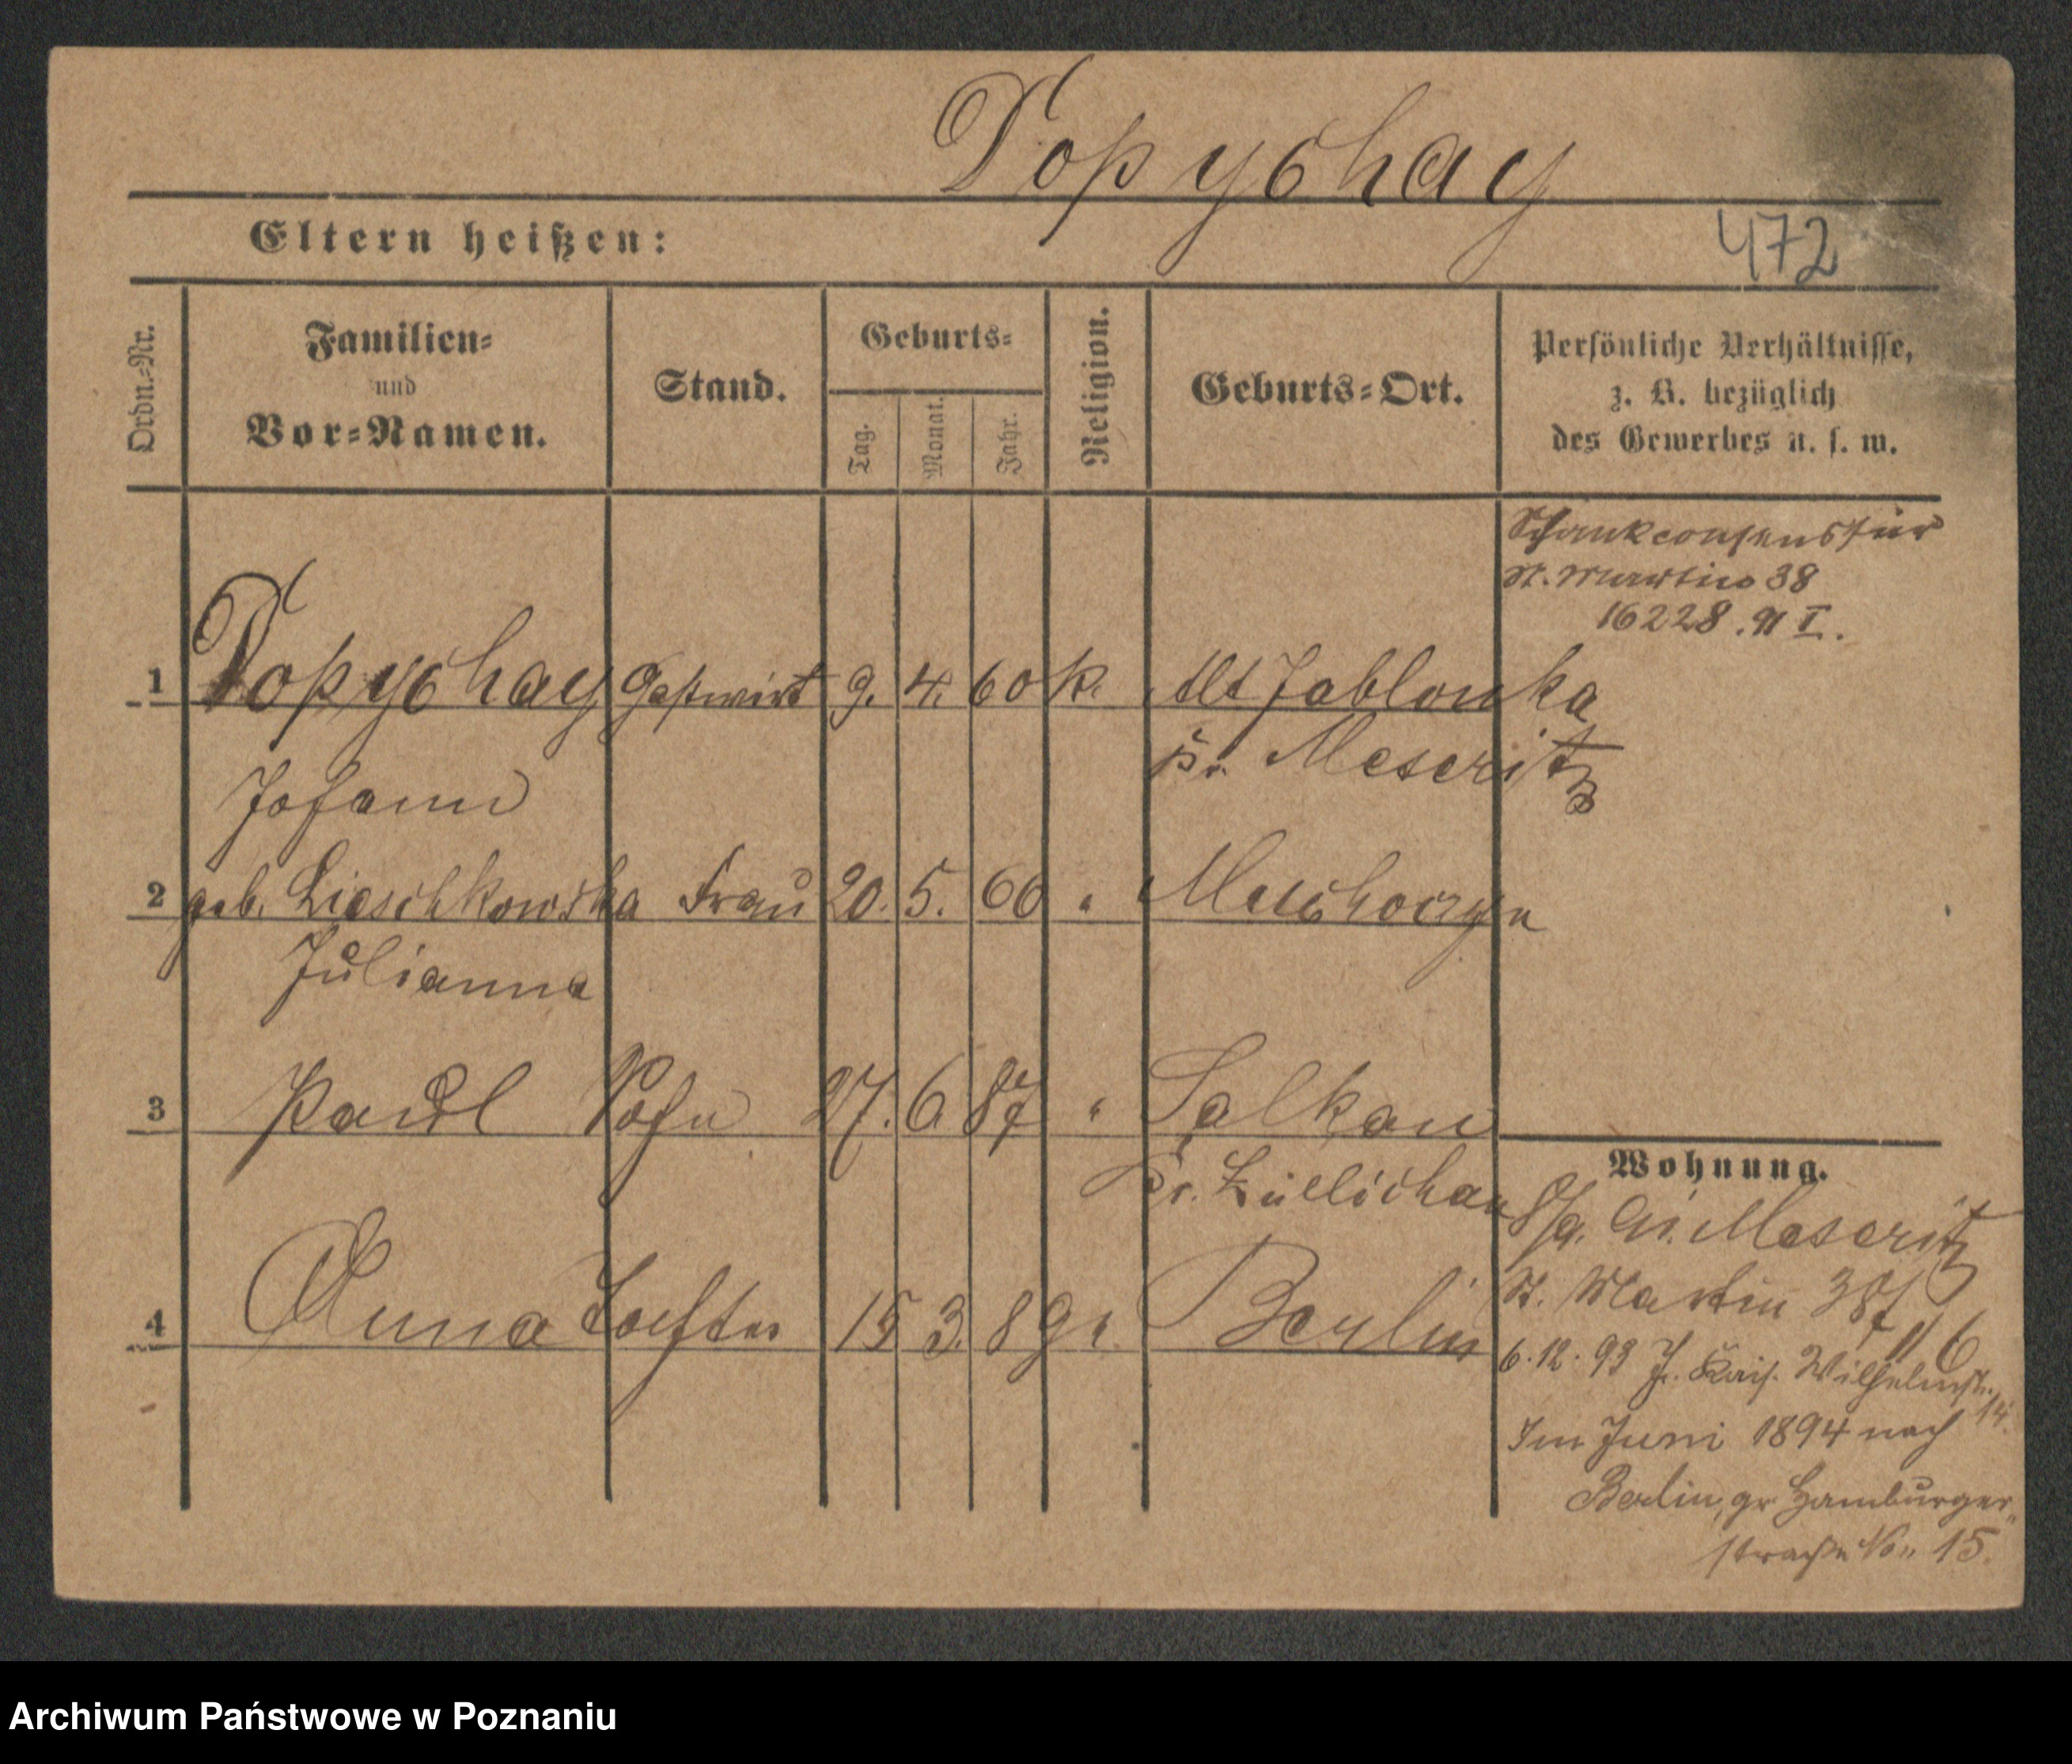 Dopychay
Eltern heißen:
472
Ordn.-Nr.
Familien-
und
Vor-Namen.
Stand.
Geburts-
Tag.
Monat.
Jahr.
Religion.
Geburts-Ort.
Persönliche Verhältnisse,
z. B. bezüglich
des Gewerbes u. s. w.
Schankconsens für
St. Martin 38
16228. 91 I.
1 Dopychay Gastwirt 9. 4. 60 K. Alt Jablonka
Johann
pr. Meseritz
2 geb. Lieschkowska Frau 20. 5. 66 "
Julianna
3 Paul Sohn 27. 6 87 " Salkau
Kr. Züllichau
4 Anna Tochter 15 3. 89 " Berlin
Wohnung.
Meseritz
St. Martin 38
6.12.93 Kais. Wilhelmstr.
14.
Im Juni 1894 nach
Berlin, gr. Hamburger-
straße No. 15.
Archiwum Państwowe w Poznaniu